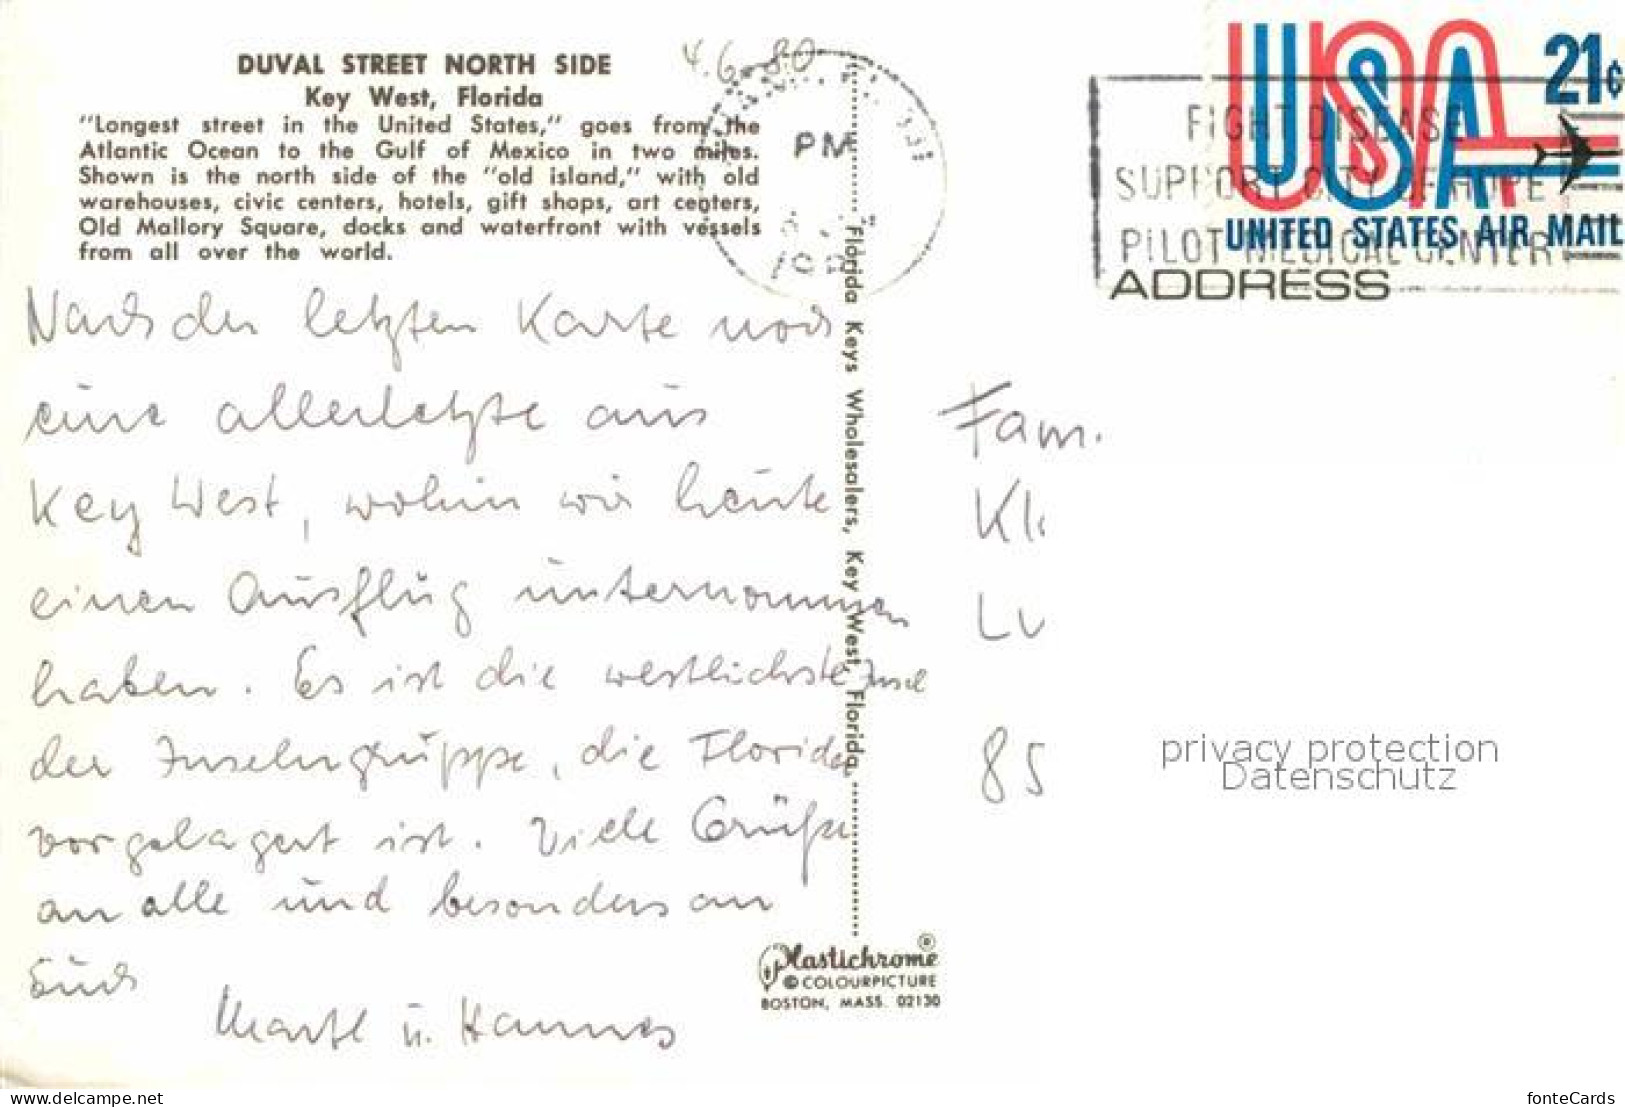 DUVAL STREET NORTH SIDE
Key West, Florida
"Longest street in the United States," goes from the
Atlantic Ocean to the Gulf of Mexico in two miles.
Shown is the north side of the "old island," with old
warehouses, civic centers, hotels, gift shops, art centers,
Old Mallory Square, docks and waterfront with vessels
from all over the world.
4.6.80
PM
USA 21¢
UNITED STATES AIR MAIL
FIGHT DISEASE
SUPPORT CITY OF HOPE
PILOT MEDICAL CENTER
ADDRESS
Nach der letzten Karte noch
eine allerletzte aus
Key West, wohin wir heute
einen Ausflug unternommen
haben. Es ist die westlichste Insel
der Inselngruppe, die Florida
vorgelagert ist. Viele Grüße
an alle und besonders an
Euch
Martl u. Hannes
Florida Keys Wholesalers, Key West, Florida
Fam.
Kl
Lu
85
privacy protection
Datenschutz
Plastichrome®
© COLOURPICTURE
BOSTON, MASS. 02130
www.delcampe.net
fonteCards